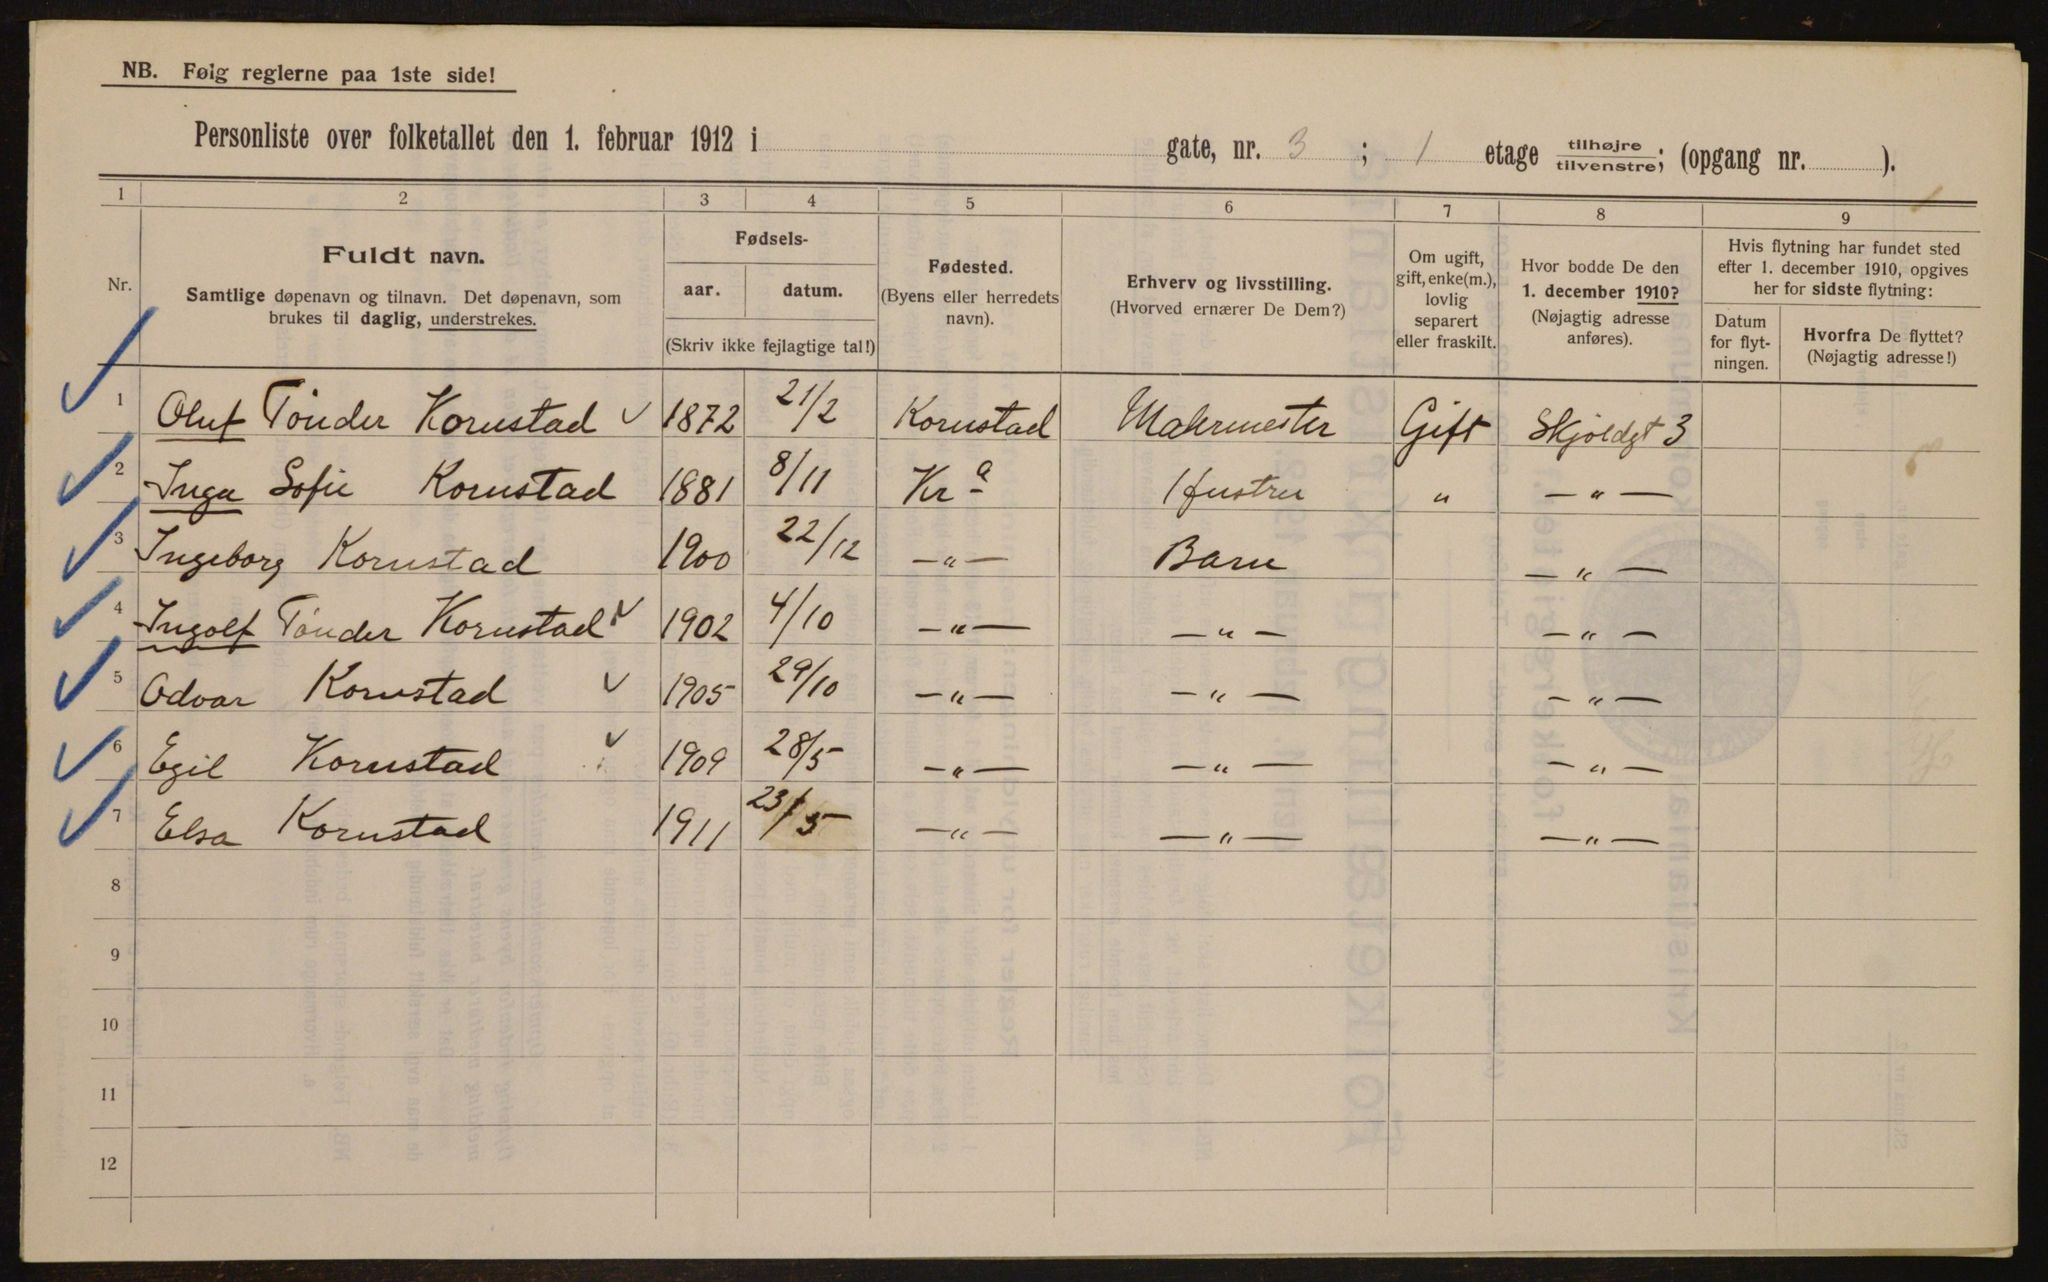 NB. Følg reglerne paa 1ste side!
Personliste over folketallet den 1. februar 1912 i gate, nr. 3 ; 1 etage tilhøjre/tilvenstre; (opgang nr. ).
1 2 3 4 5 6 7 8 9
Nr.
Fuldt navn.
Samtlige døpenavn og tilnavn. Det døpenavn, som
brukes til daglig, understrekes.
Fødsels-
aar. datum.
(Skriv ikke fejlagtige tal!)
Fødested.
(Byens eller herredets
navn).
Erhverv og livsstilling.
(Hvorved ernærer De Dem?)
Om ugift,
gift, enke(m.),
lovlig
separert
eller fraskilt.
Hvor bodde De den
1. december 1910?
(Nøjagtig adresse
anføres).
Hvis flytning har fundet sted
efter 1. december 1910, opgives
her for sidste flytning:
Datum
for flyt-
ningen.
Hvorfra De flyttet?
(Nøjagtig adresse!)
1 Oluf Tönder Kornstad 1872 21/2 Kornstad Malermester Gift Skjoldgt 3
2 Inga Sofie Kornstad 1881 8/11 Kr a Hustru " — " —
3 Ingeborg Kornstad 1900 22/12 — " — Barn — " —
4 Ingolf Tönder Kornstad 1902 4/10 — " — — " — — " —
5 Odvar Kornstad 1905 29/10 — " — — " — — " —
6 Egil Kornstad 1909 28/5 — " — — " — — " —
7 Elsa Kornstad 1911 23/5 — " — — " — — " —
8
9
10
11
12